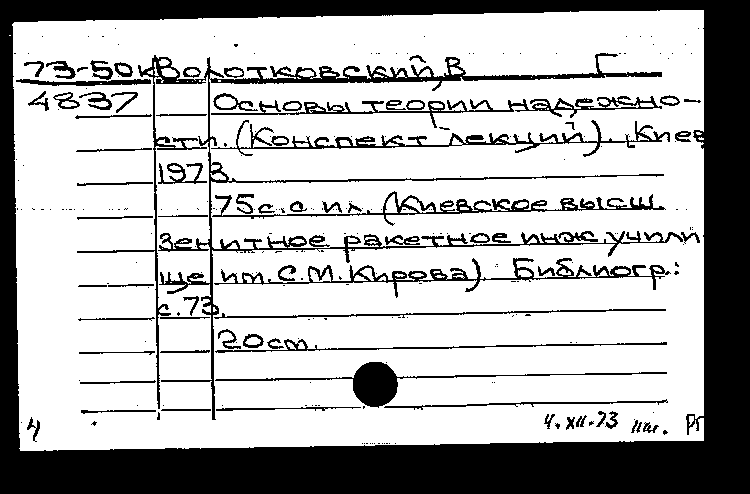 73-50к Волотковский, В Г
4837 Основы теории надежно-
сти. (Конспект лекций). Киев
1973.
75с. с ил. (Киевское высш.
зенитное ракетное инж. учили-
ще им. С.М. Кирова) Библиогр.:
с. 73.
20 ст.
4 4.XII.73